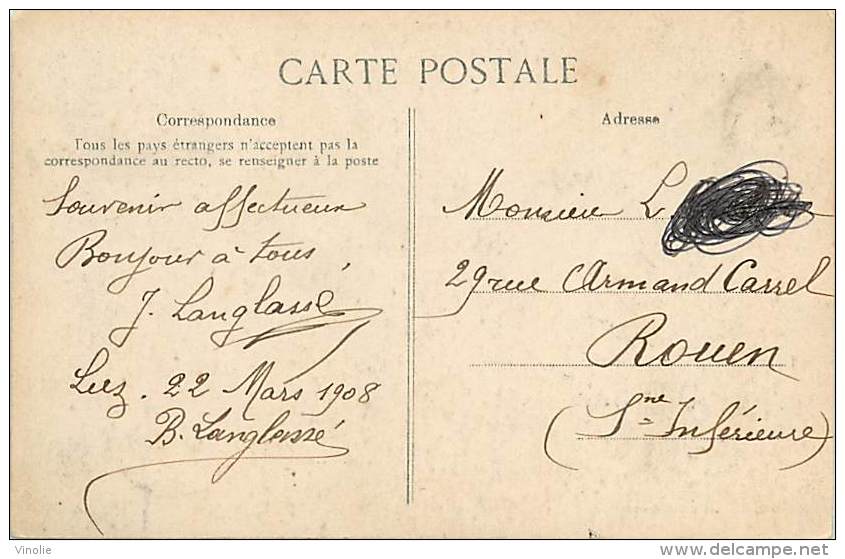 CARTE POSTALE
Correspondance
Tous les pays étrangers n'acceptent pas la
correspondance au recto, se renseigner à la poste
Souvenir affectueux
Bonjour à tous,
J. Langlassé
22 Mars 1908
B. Langlassé
Adresse
Monsieur L.
29 rue Armand Carrel
Rouen
(Sne Inférieure)
Vinolie
delcampe.net